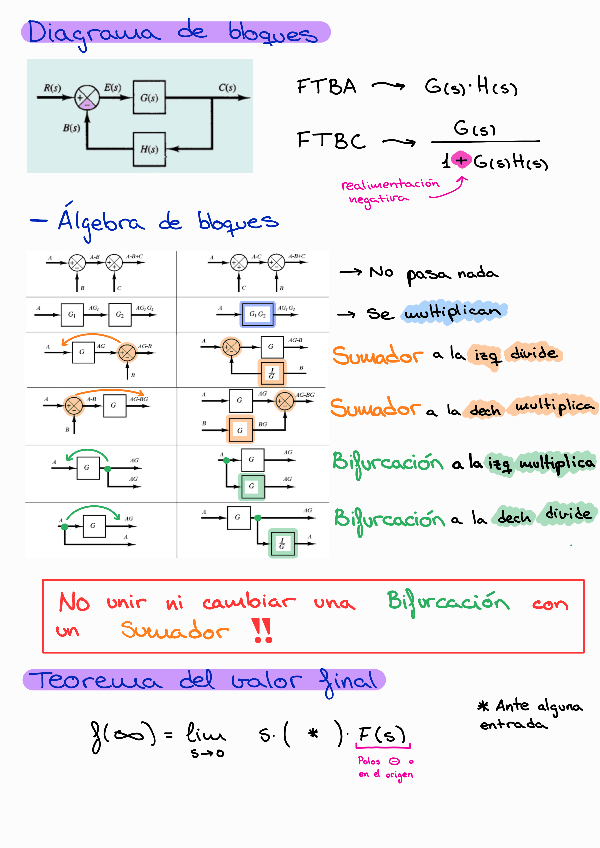 Diagrama de bloques
R(s) + − E(s) G(s) C(s)
B(s) H(s)
FTBA → G(s)·H(s)
FTBC → G(s)
1 + G(s)H(s)
realimentación
negativa
− Álgebra de bloques
A A-B A-B+C A A-C A-B+C
B C C B
→ No pasa nada
A G₁ AG₁ G₂ AG₁G₂ A G₁G₂ AG₁G₂
→ Se multiplican
A G AG AG-B A G AG-B
B 1/G B
Sumador a la izq divide
A A-B G AG-BG A G AG AG-BG
B B G BG
Sumador a la dech multiplica
A G AG A G AG
AG G AG
Bifurcación a la izq multiplica
A G AG A G AG
A 1/G A
Bifurcación a la dech divide
No unir ni cambiar una Bifurcación con
un Sumador !!
Teorema del valor final
* Ante alguna
entrada
f(∞) = lim s·( * )· F(s)
s→0
Polos ⊖ o
en el origen